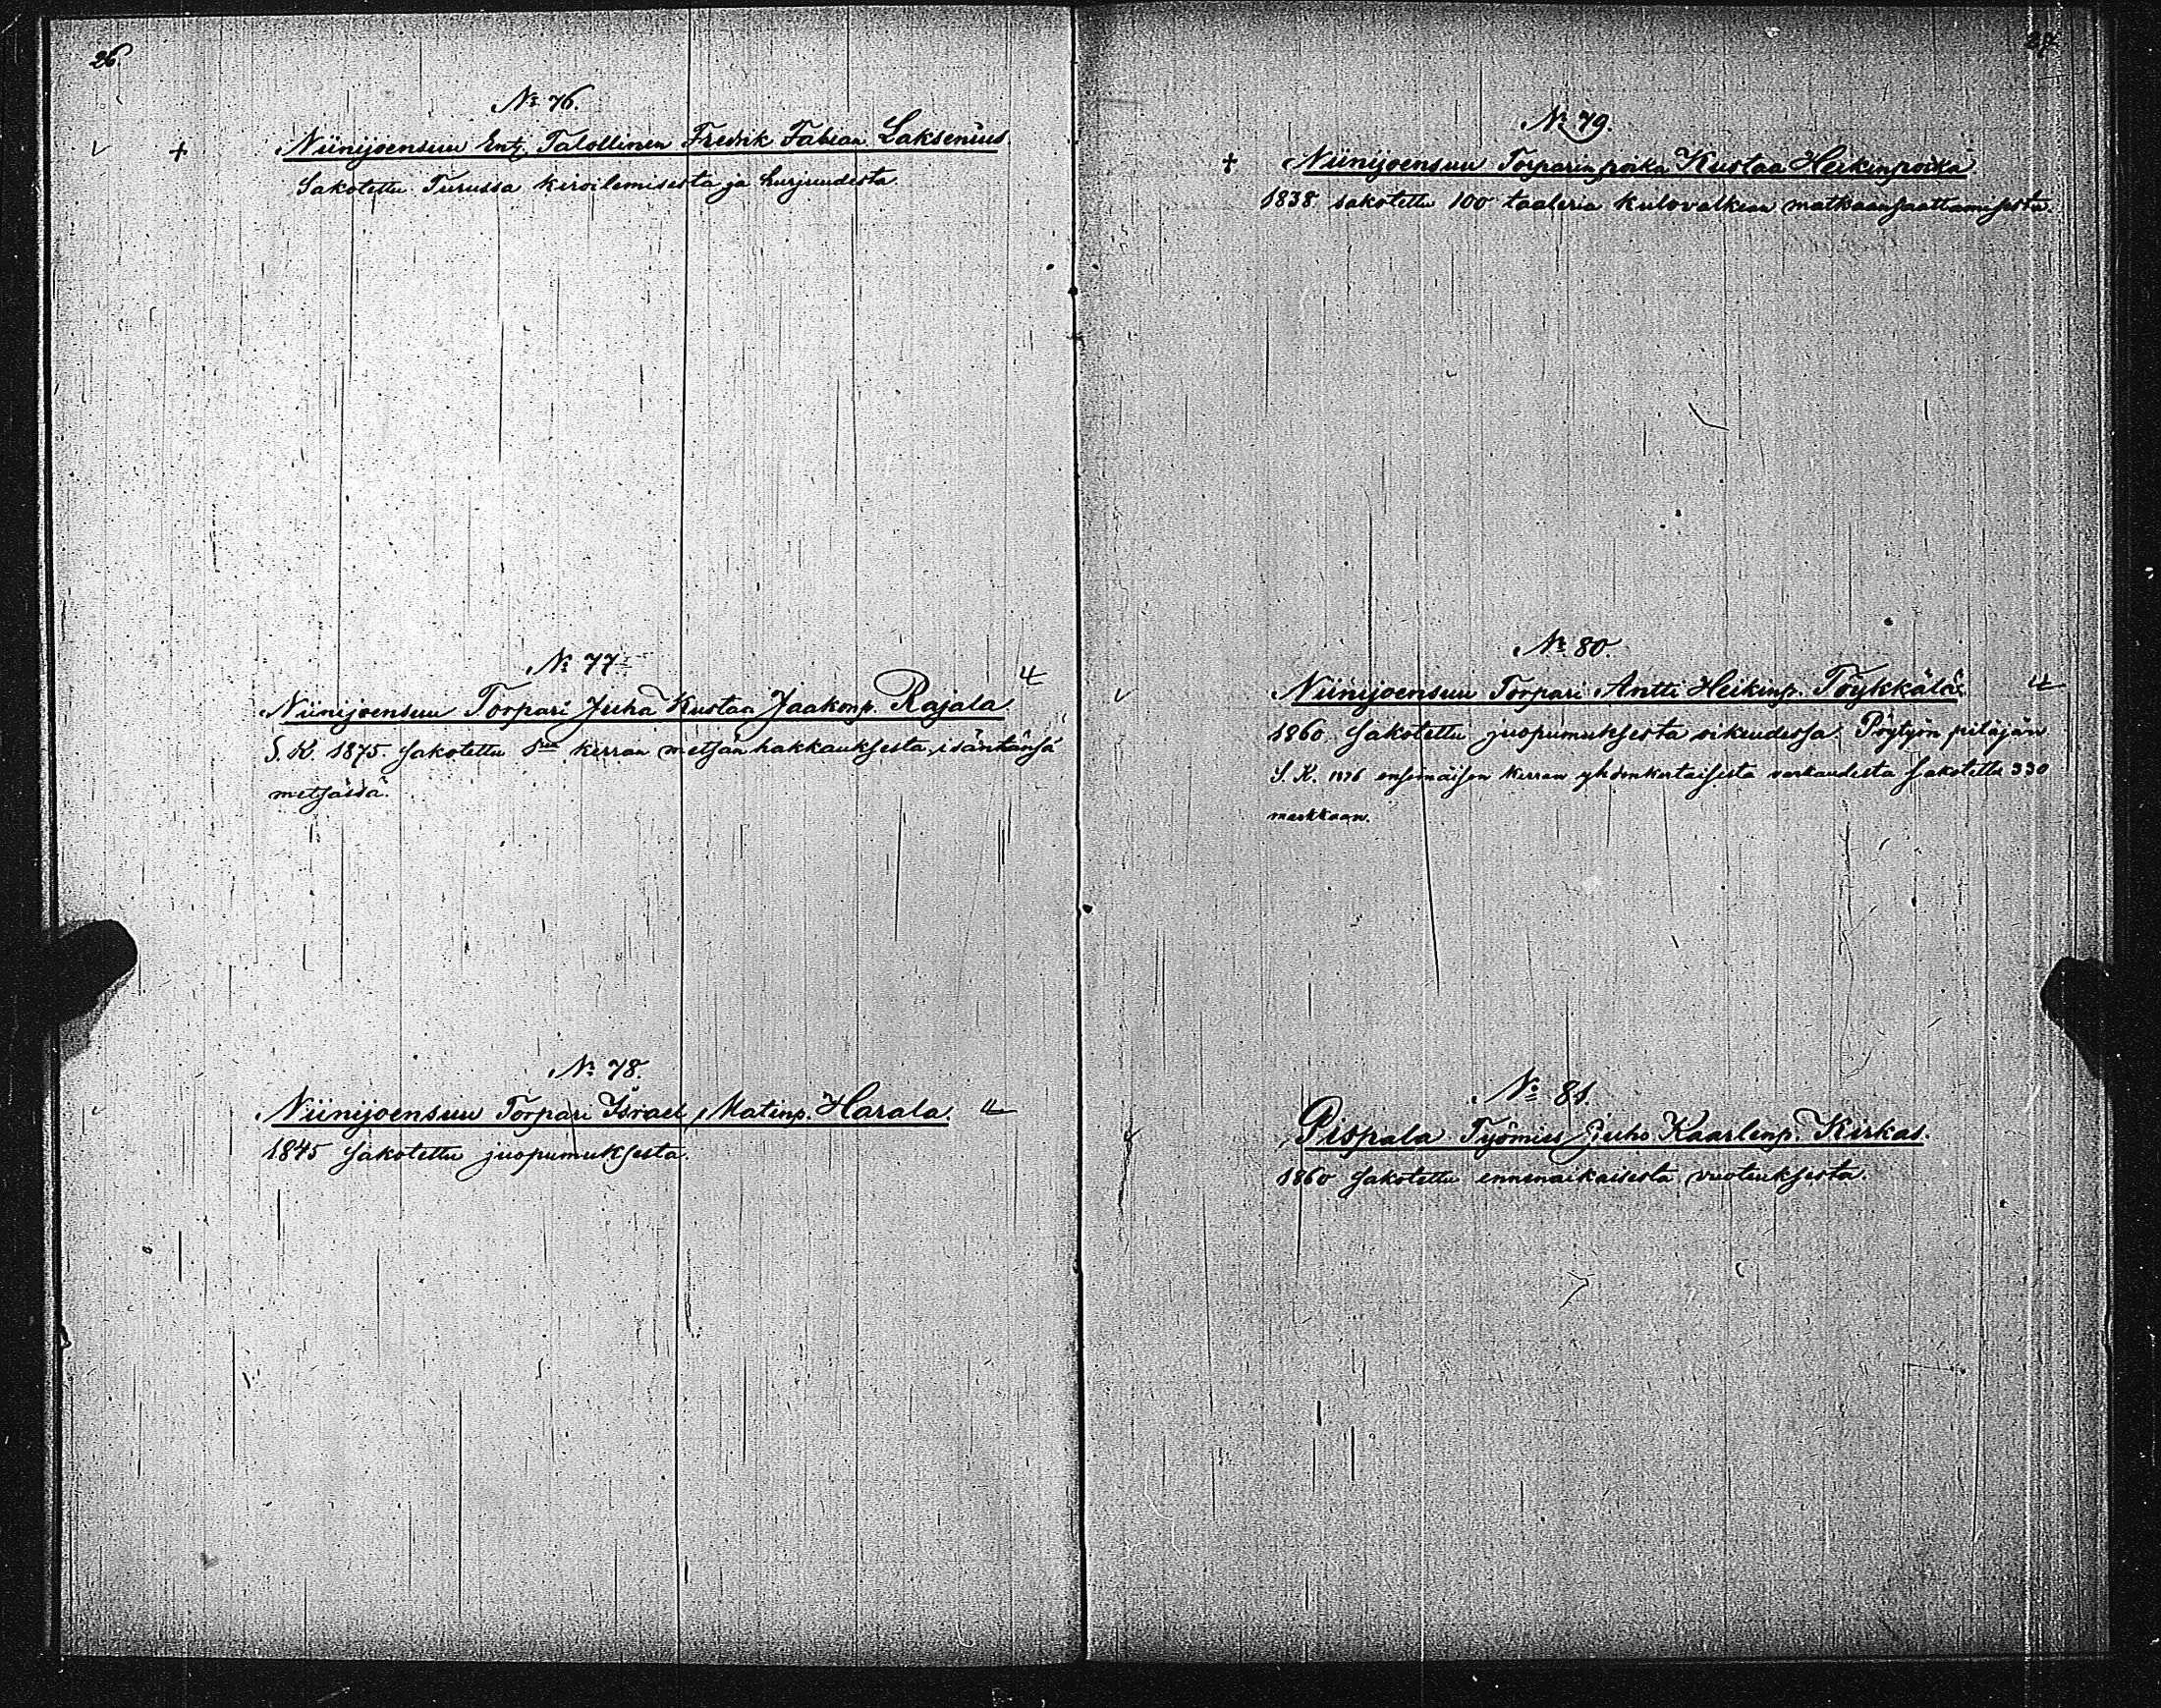 26
№ 76.
+ Niinijoensuu Ent. Talollinen Fredrik Fabian Laksenius.
Sakotettu Turussa kiroilemisesta ja hurjuudesta.
№ 77.
Niinijoensuu Torpari Juha Kustaa Jaakonp. Rajala.
S. K. 1875 sakotettu 1sen kerran metsän hakkauksesta, isäntänsä
metsässä.
№ 78.
Niinijoensuu Torpari Israel Matinp. Harala.
1845 sakotettu juopumuksesta.
27
№ 79.
+ Niinijoensuu Torparin poika Kustaa Heikinpoika.
1838 sakotettu 100 taaleria kulovalkean matkaansaattamisesta.
№ 80.
Niinijoensuu Torpari Antti Heikinp. Töykkälä.
1860 sakotettu juopumuksesta oikeudessa. Pöytyön pitäjän
S. K. 1876 ensimäisen kerran yhdenkertaisesta varkaudesta sakotettu 330
markkaan.
№ 81.
Pispala Työmies Juho Kaarlenp. Kirkas.
1860 sakotettu ennenaikaisesta vuoteuksesta.